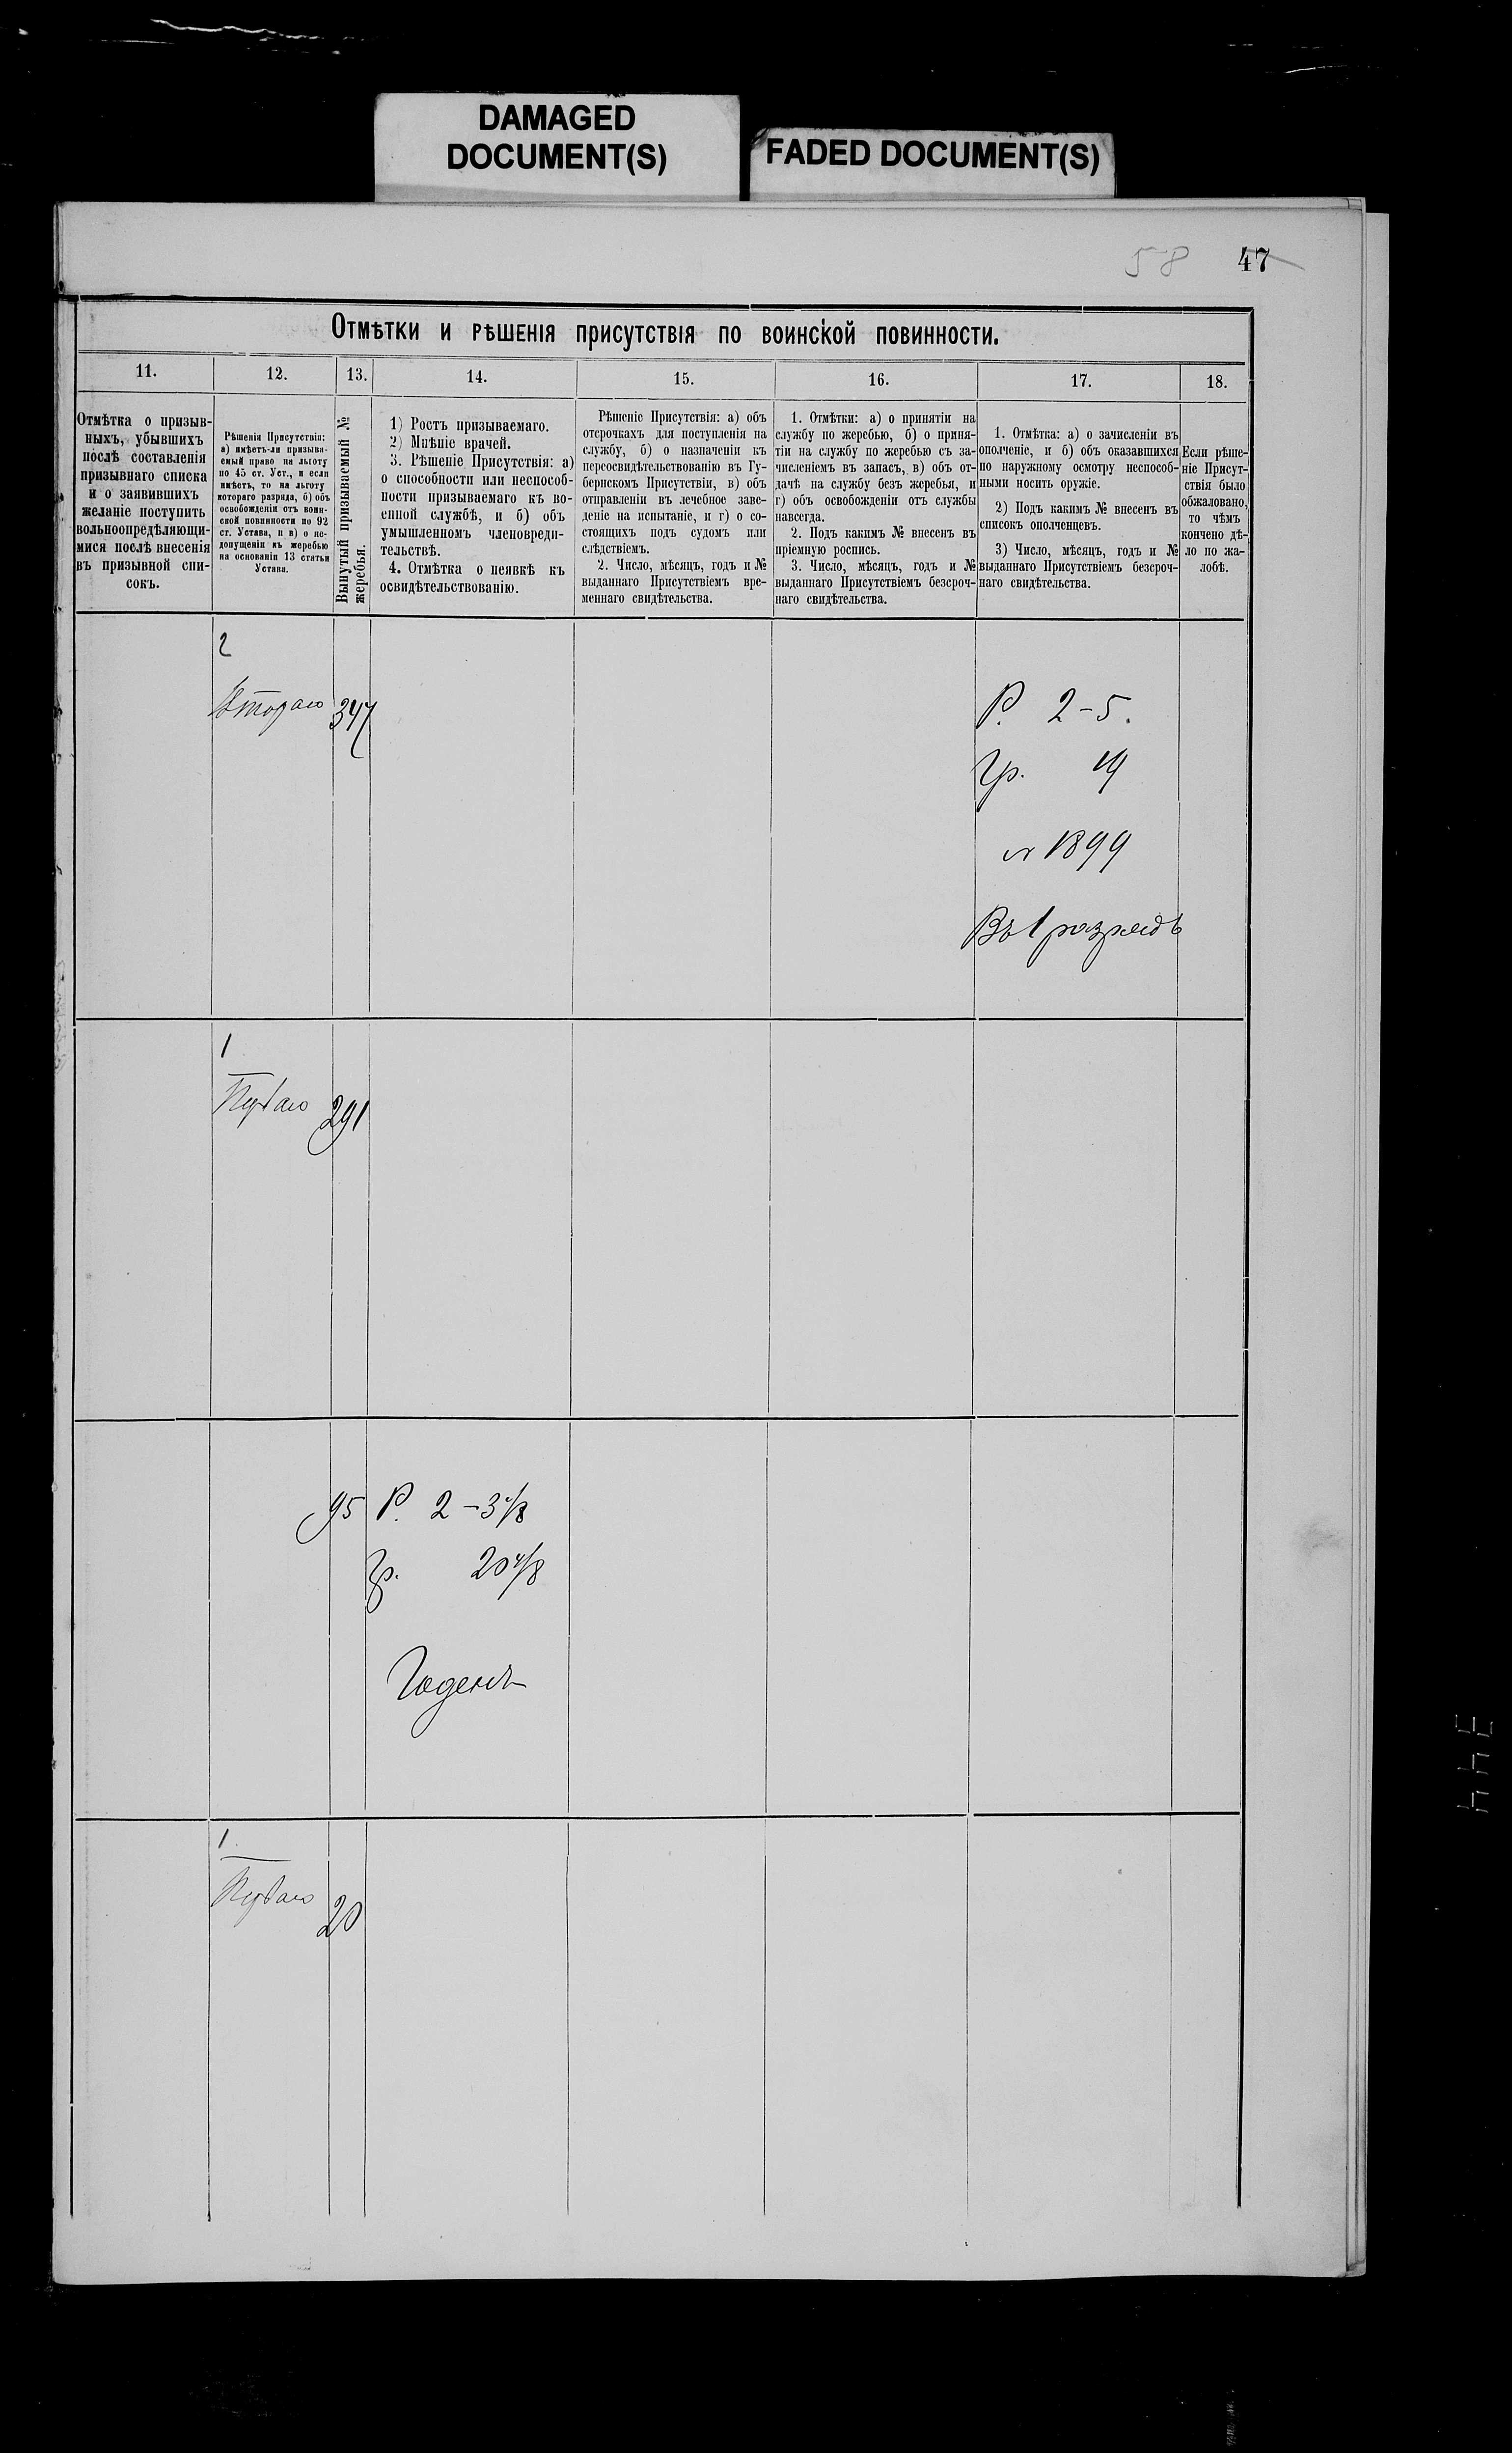 DAMAGED
DOCUMENT(S)
FADED DOCUMENT(S)
58 47
Отмѣтки и рѣшенія присутствія по воинской повинности.
11.
12.
13.
14.
15.
16.
17.
18.
Отмѣтка о призыв-
ныхъ, убывшихъ
послѣ составленія
призывнаго списка
и о заявившихъ
желаніе поступить
вольноопредѣляющи-
мися послѣ внесенія
въ призывной спи-
сокъ.
Рѣшенія Присутствія:
а) имѣетъ-ли призыва-
емый право на льготу
по 45 ст. Уст., и если
имѣетъ, то на льготу
котораго разряда, б) объ
освобожденіи отъ воин-
ской повинности по 92
ст. Устава, и в) о не-
допущеніи къ жеребью
на основаніи 13 статьи
Устава.
Вынутый призываемый №
жеребья.
1) Ростъ призываемаго.
2) Мнѣніе врачей.
3. Рѣшеніе Присутствія: а)
о способности или неспособ-
ности призываемаго къ во-
енной службѣ, и б) объ
умышленномъ членовреди-
тельствѣ.
4. Отмѣтка о неявкѣ къ
освидѣтельствованію.
Рѣшеніе Присутствія: а) объ
отсрочкахъ для поступленія на
службу, б) о назначеніи къ
переосвидѣтельствованію въ Гу-
бернскомъ Присутствіи, в) объ
отправленіи въ лечебное заве-
деніе на испытаніе, и г) о со-
стоящихъ подъ судомъ или
слѣдствіемъ.
2. Число, мѣсяцъ, годъ и №
выданнаго Присутствіемъ вре-
меннаго свидѣтельства.
1. Отмѣтки: а) о принятіи на
службу по жеребью, б) о приня-
тіи на службу по жеребью съ за-
численіемъ въ запасъ, в) объ от-
дачѣ на службу безъ жеребья, и
г) объ освобожденіи отъ службы
навсегда.
2. Подъ какимъ № внесенъ въ
пріемную роспись.
3. Число, мѣсяцъ, годъ и №
выданнаго Присутствіемъ безсроч-
наго свидѣтельства.
1. Отмѣтка: а) о зачисленіи въ
ополченіе, и б) объ оказавшихся
по наружному осмотру неспособ-
ными носить оружіе.
2) Подъ какимъ № внесенъ въ
списокъ ополченцевъ.
3) Число, мѣсяцъ, годъ и №
выданнаго Присутствіемъ безсроч-
наго свидѣтельства.
Если рѣше-
ніе Присут-
ствія было
обжаловано,
то чѣмъ
кончено дѣ-
ло по жа-
лобѣ.
2
Втораго 347
Р. 2-5.
Гр. 19
№ 1899
Въ 1 разрядъ
1
Перваго 291
95 Р. 2-3 4/8
Гр. 20 4/8
Годенъ
1.
Перваго 20
344